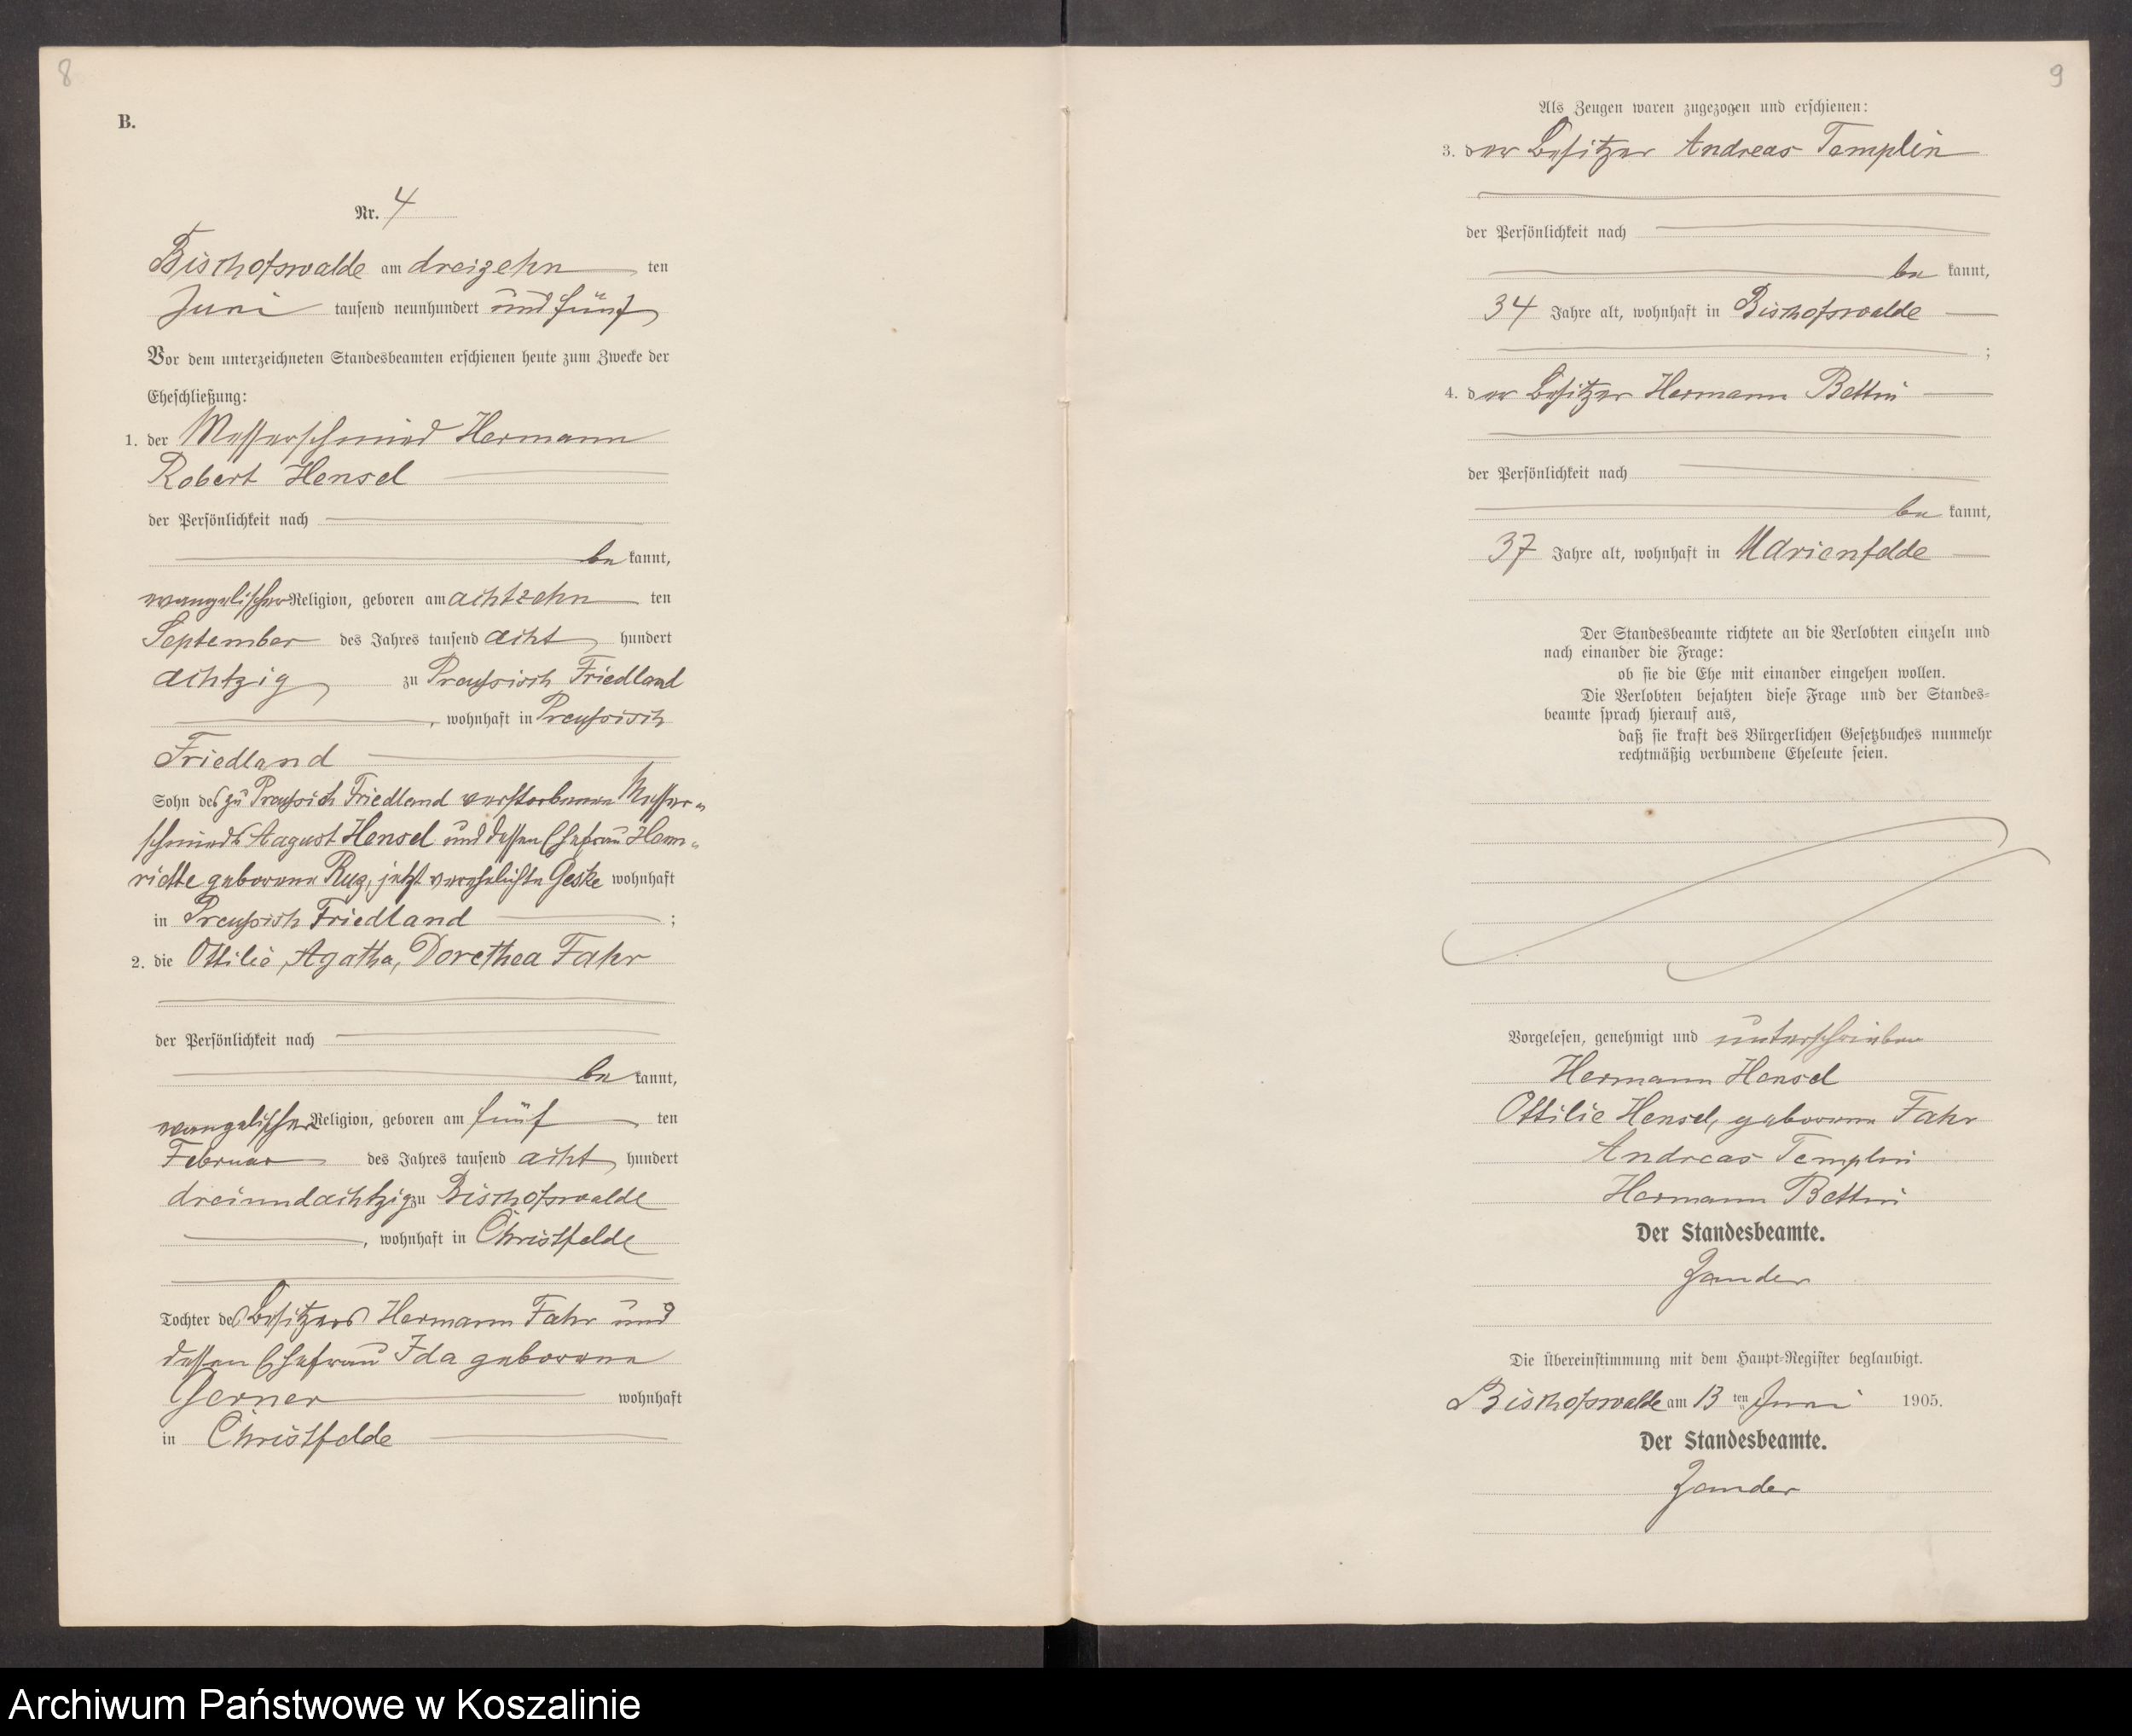 8
B.
Nr. 4
Bischofswalde am dreizehn ten
Juni tausend neunhundert und fünf
Vor dem unterzeichneten Standesbeamten erschienen heute zum Zwecke der
Eheschließung:
1. der Messerschmied Hermann
Robert Hensel
der Persönlichkeit nach
be kannt,
evangelischer Religion, geboren am achtzehn ten
September des Jahres tausend acht hundert
achtzig zu Preussisch Friedland
, wohnhaft in Preussisch
Friedland
Sohn des zu Preussich Friedland verstorbenen Messer-
schmieds August Hensel und dessen Ehefrau Hen-
riette geborene Rug, jetzt verehelichte Geske wohnhaft
in Preussisch Friedland ;
2. die Ottilie, Agatha, Dorethea Fahr
der Persönlichkeit nach
be kannt,
evangelischer Religion, geboren am fünf ten
Februar des Jahres tausend acht hundert
dreiundachtzig zu Bischofswalde
, wohnhaft in Christfelde
Tochter des Besitzers Hermann Fahr und
dessen Ehefrau Ida geborene
Gerner wohnhaft
in Christfelde
9
Als Zeugen waren zugezogen und erschienen:
3. der Besitzer Andreas Templin
der Persönlichkeit nach
be kannt,
34 Jahre alt, wohnhaft in Bischofswalde
;
4. der Besitzer Hermann Bettin
der Persönlichkeit nach
be kannt,
37 Jahre alt, wohnhaft in Marienfelde
Der Standesbeamte richtete an die Verlobten einzeln und
nach einander die Frage:
ob sie die Ehe mit einander eingehen wollen.
Die Verlobten bejahten diese Frage und der Standes-
beamte sprach hierauf aus,
daß sie kraft des Bürgerlichen Gesetzbuches nunmehr
rechtmäßig verbundene Eheleute seien.
Vorgelesen, genehmigt und unterschrieben
Hermann Hensel
Ottilie Hensel, geborene Fahr
Andreas Templin
Hermann Bettin
Der Standesbeamte.
Zander
Die Übereinstimmung mit dem Haupt-Register beglaubigt.
Bischofswalde am 13 ten Juni 1905.
Der Standesbeamte.
Zander
Archiwum Państwowe w Koszalinie